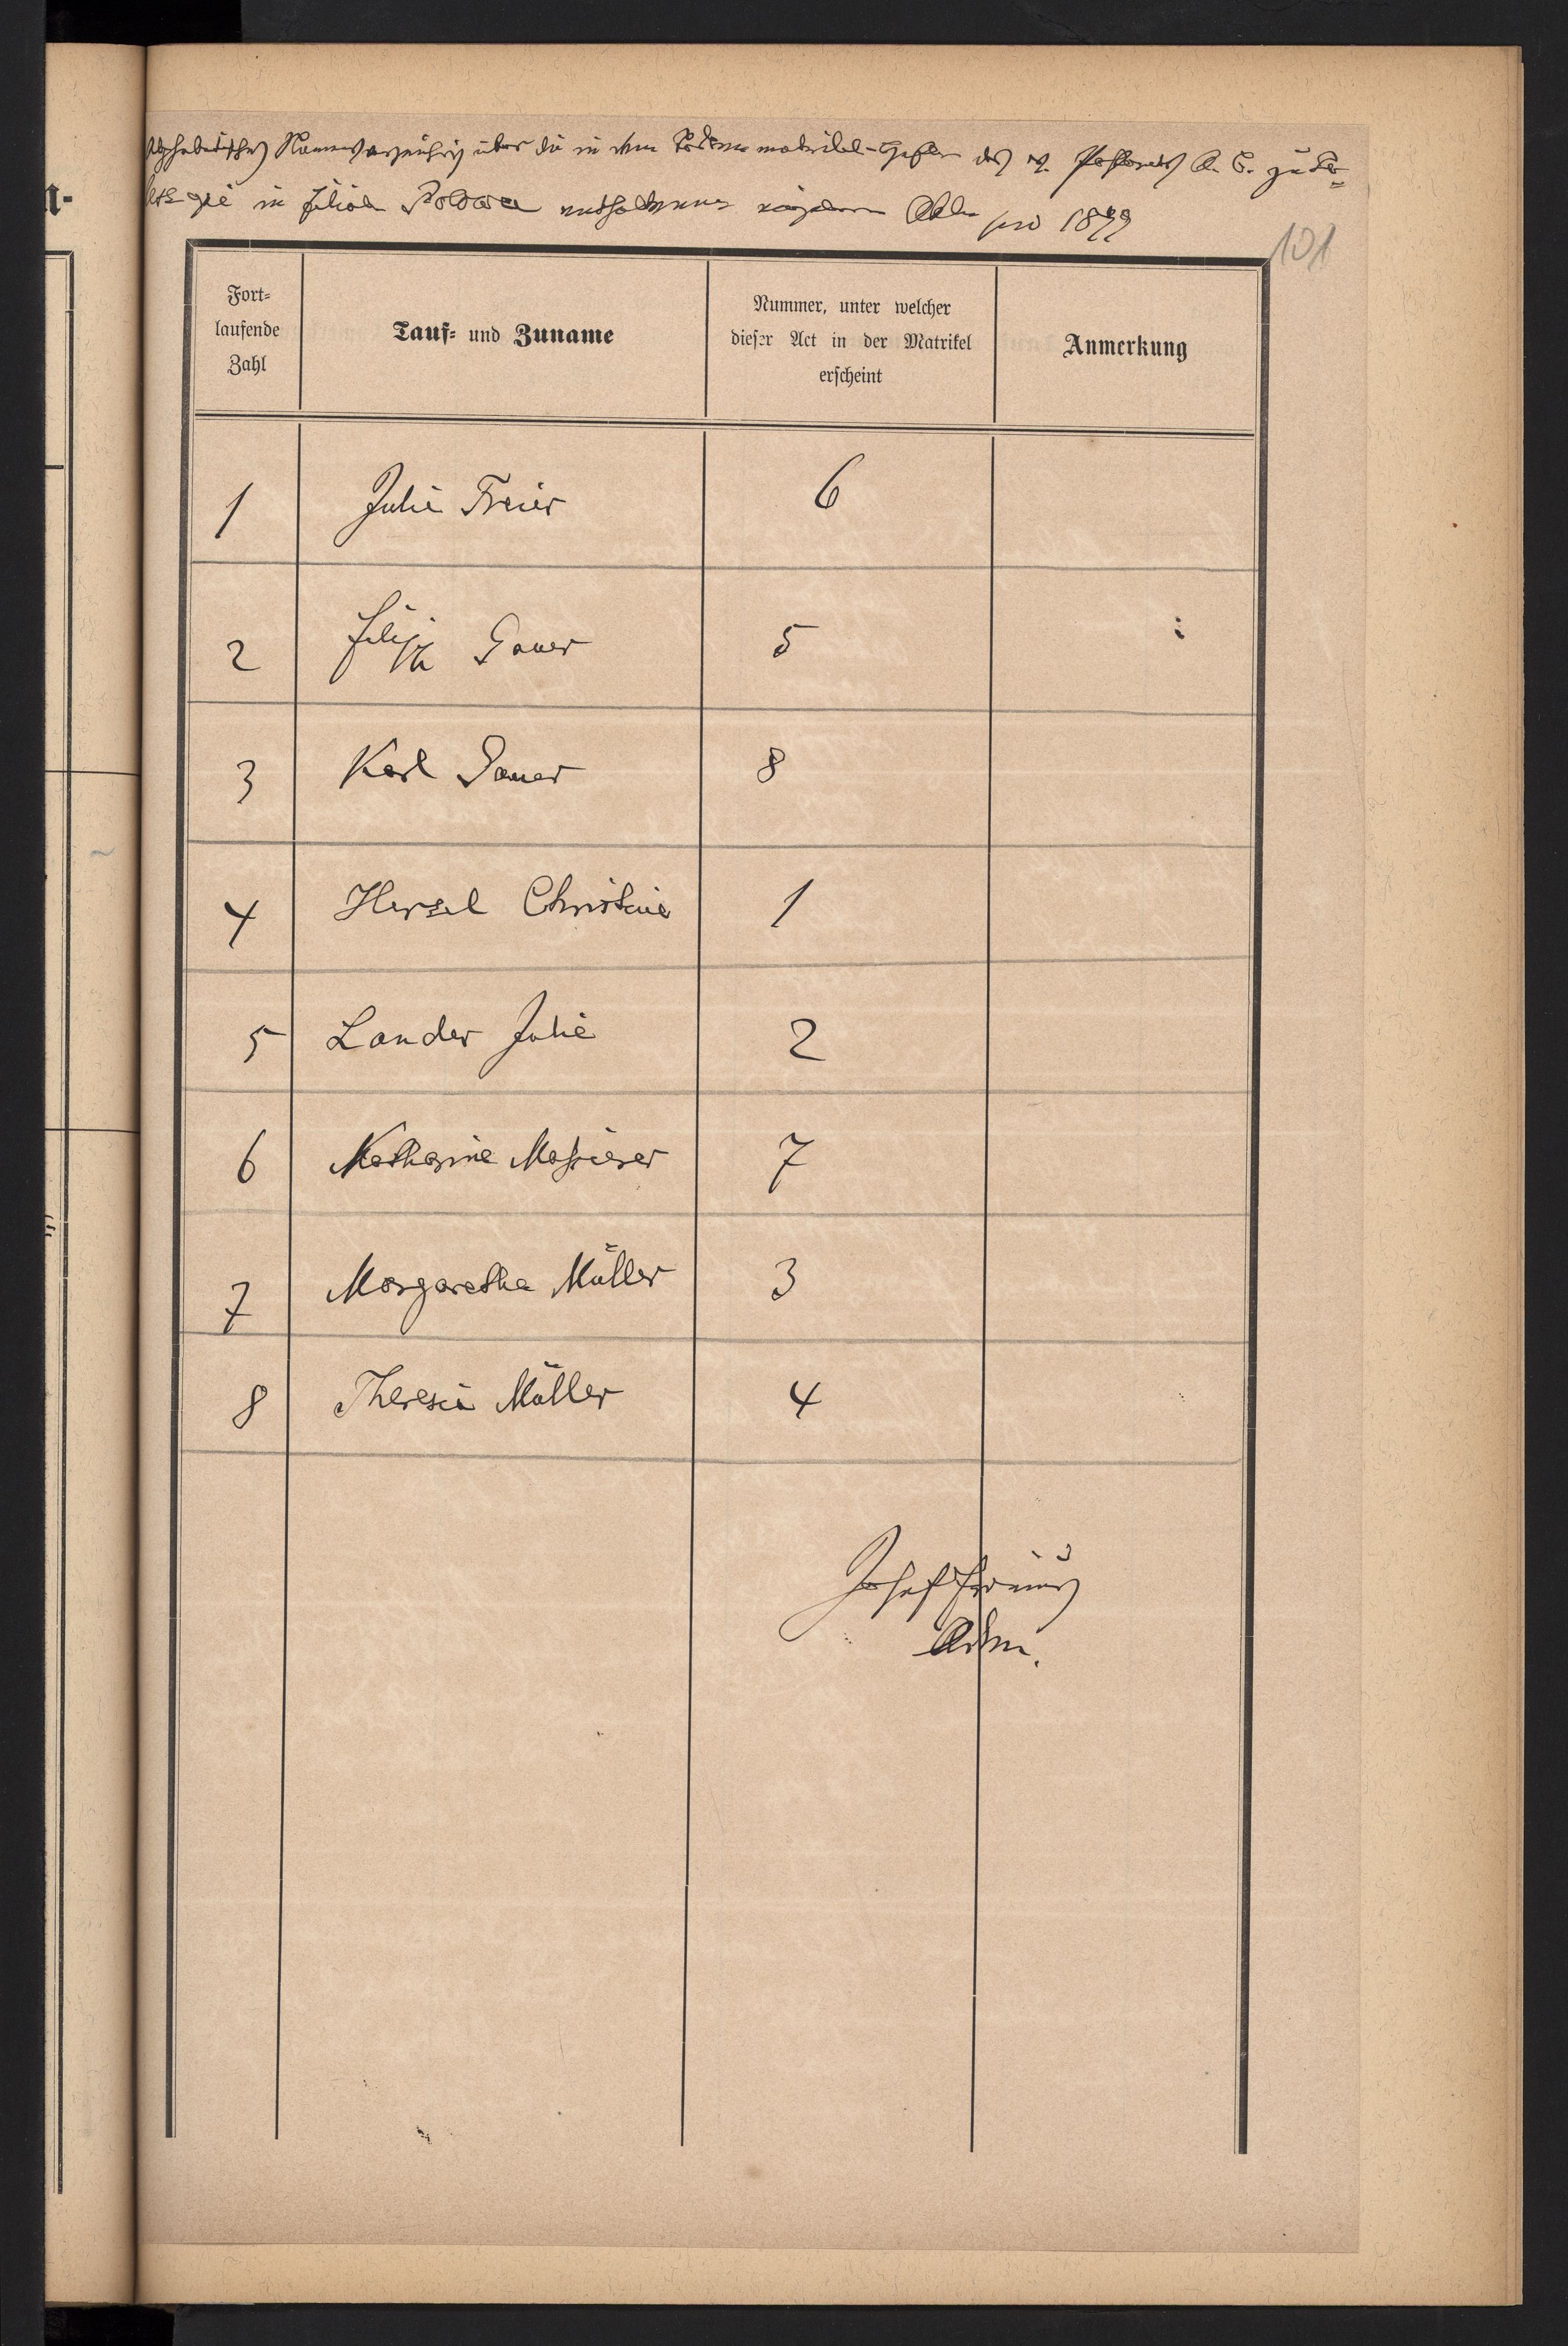 Alphabetisches Namensverzeichnis über die in dem Todten matrikel-Hefte des ev. Pfarramtes A. B. zu
in Filiale enthaltenen einzelnen Akte pro 1899
101
Fort= laufende Zahl
Tauf= und Zuname
Nummer, unter welcher dieser Act in der Matrikel erscheint
Anmerkung
1 Julie Freier 6
2 Filipp Gauer 5
3 Karl Gauer 8
4 Hersel Christine 1
5 Lander Julie 2
6 Katharine Massierer 7
7 Margaretha Müller 3
8 Theresia Müller 4
Josef
Adm.